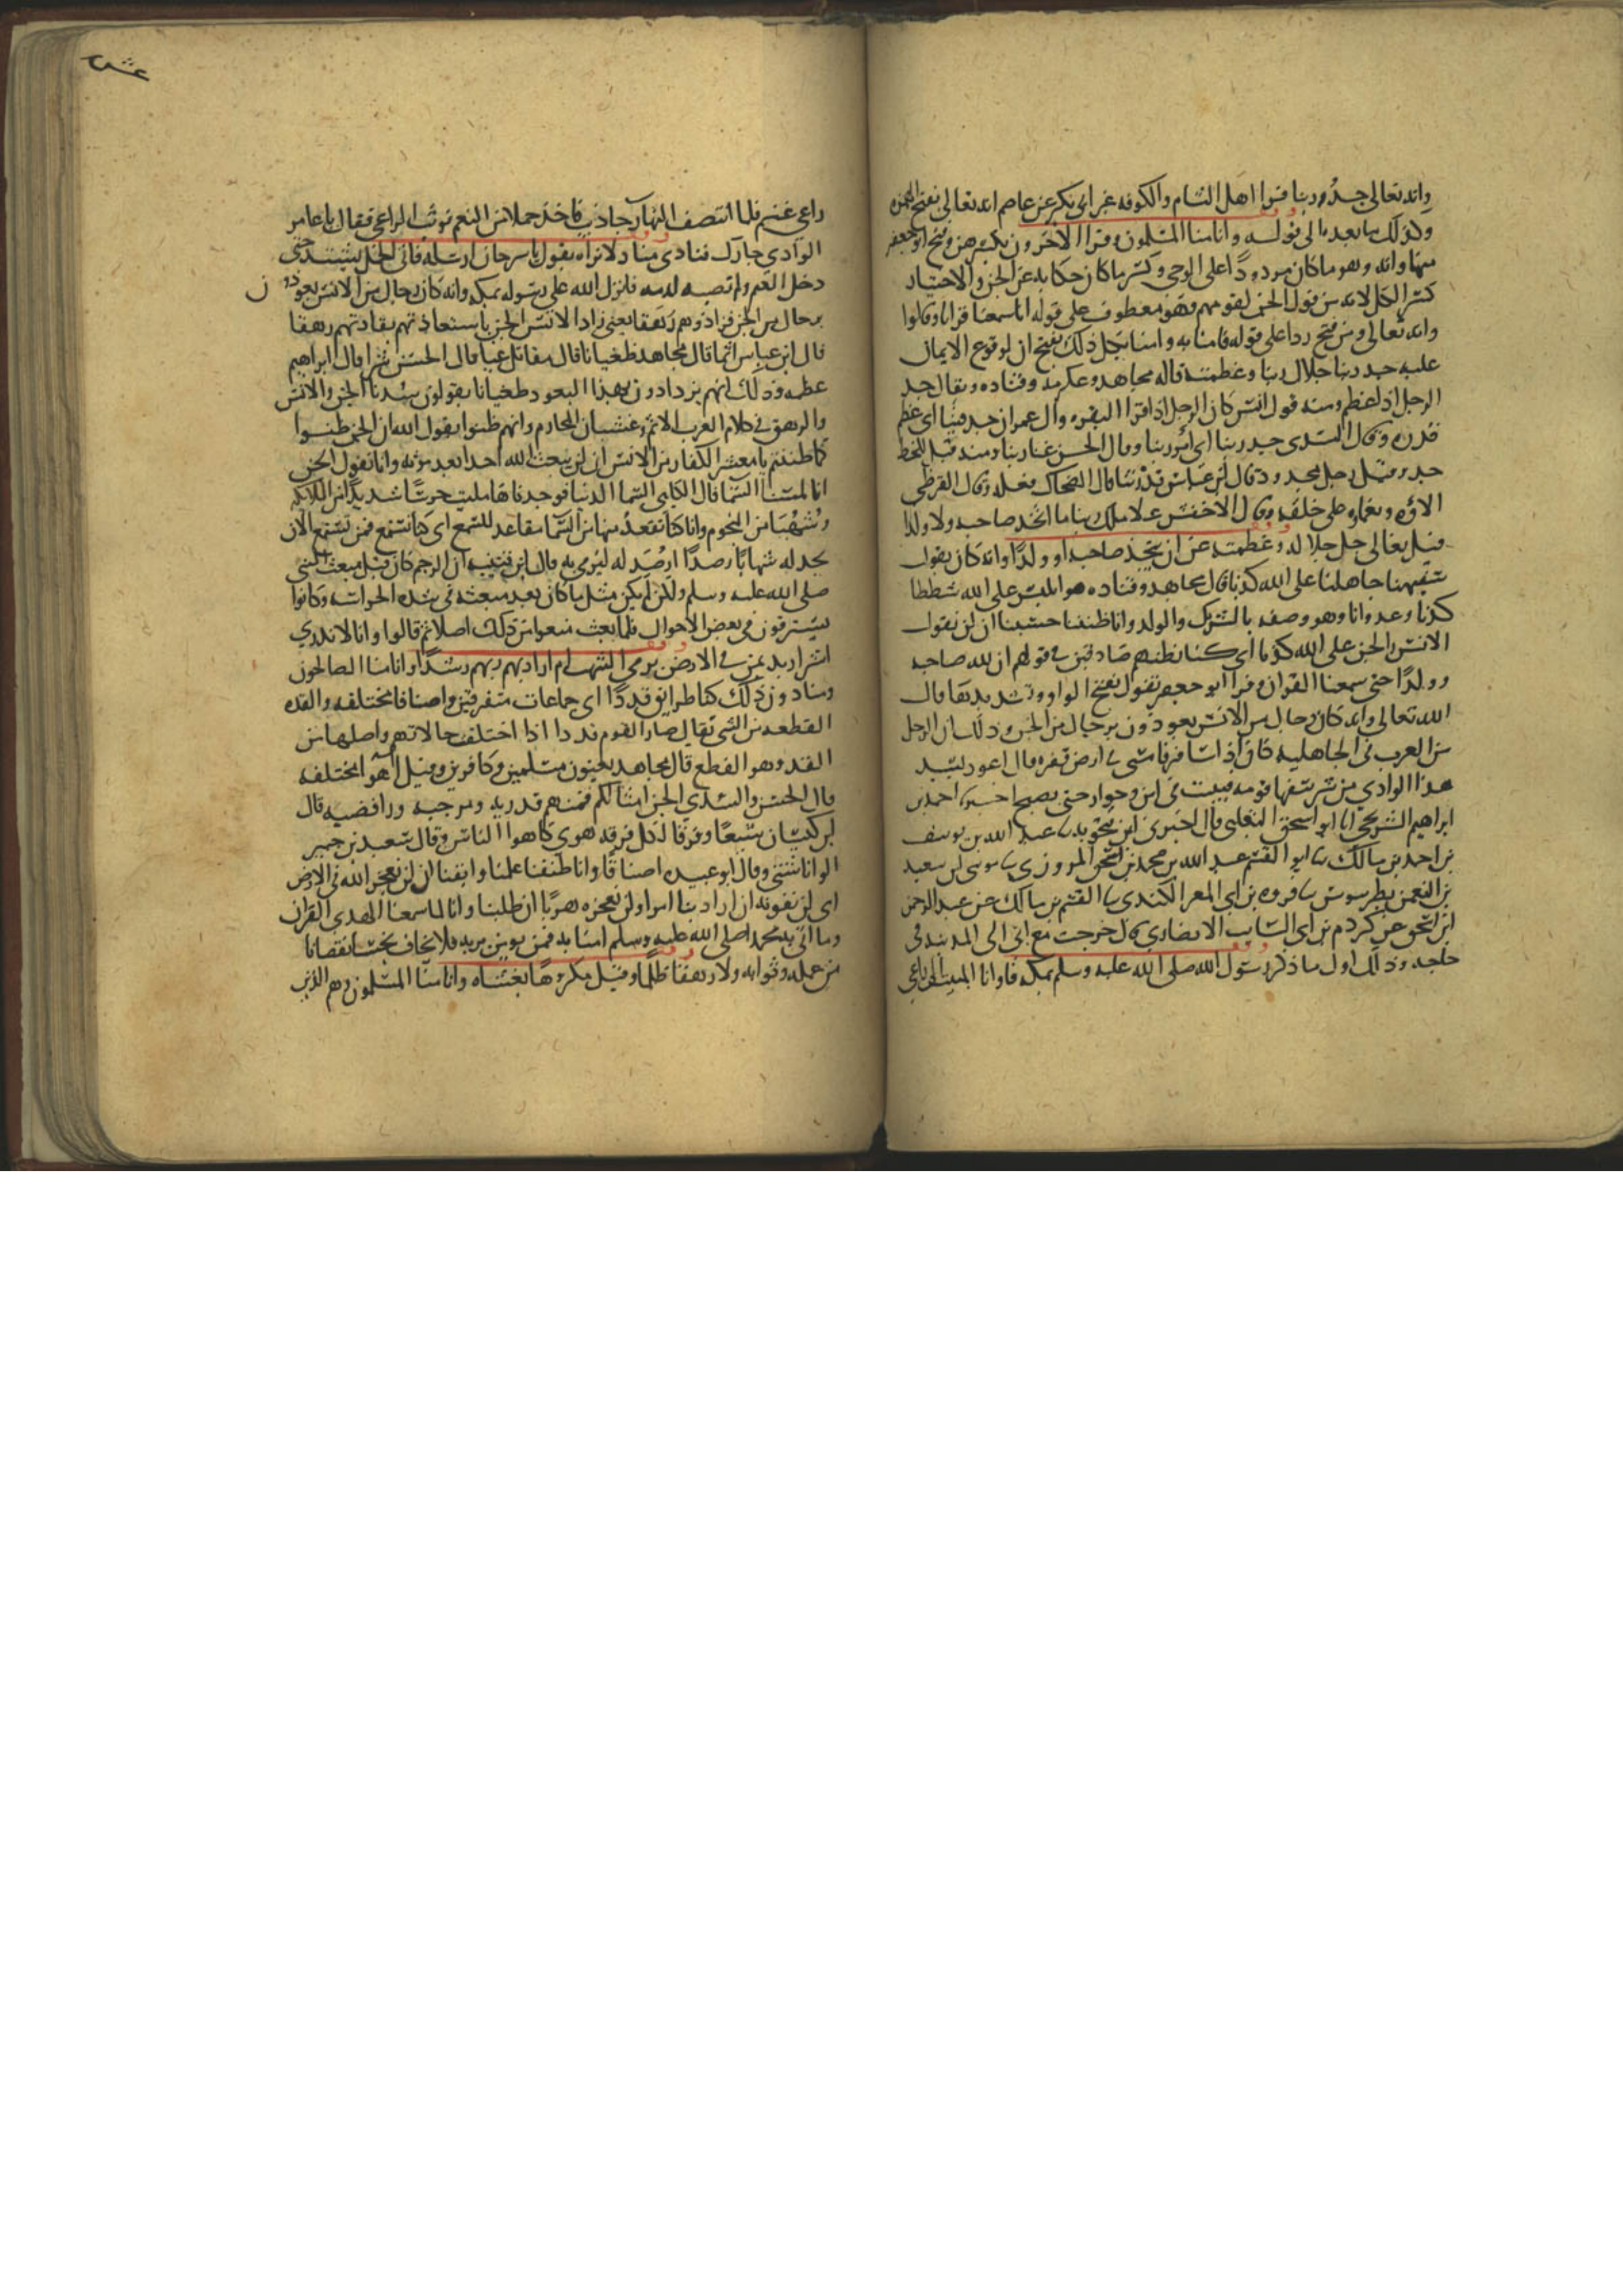 وانه تعالى جد ربنا قرا اهل الشام والكوفه غير ابي بكر عن عاصم انه تعالى بفتح الهمزه
وكذلك ما بعده الى قوله وانا منا المسلمون وقرا الاخرون بكسرهن وفتح ابو جعفر
منها وانه وهو ما كان مردودًا على الوحي وكسر ما كان حكايه عن الجن والاختيار
كسر الكل لانه من قول الجن لقومهم فهو معطوف على قوله انا سمعنا قرانا وقالوا
وانه تعالى ومن فتح ردا على قوله فامنا به وامنا بكل ذلك ففتح ان لوقوع الايمان
عليه جد ربنا جلال ربنا وعظمته قاله مجاهد وعكرمه وقتاده ويقال جد
الرجل اذا عظم ومنه قول انس كان الرجل اذا قرا البقره وال عمران جد فينا اي عظم
قدره وقال السدي جد ربنا اي امر ربنا وقال الحسن غنا ربنا ومنه قيل للحظ
جد ورجل مجدود وقال ابن عباس قدرة ربنا قال الضحاك فعله وقال القرظي
الاؤه ونعماوه على خلقه وقال الاخفش علا ملك ربنا ما اتخذ صاحبه ولا ولدا
قيل تعالى جل جلاله وعظمته عن ان يتخذ صاحبه او ولدًا وانه كان يقول
سفيهنا جاهلنا على الله كذبا قال مجاهد وقتاده هو ابليس على الله شططا
كذبا وعدوانا وهو وصفه بالشرك والولد وانا ظننا حسبنا ان لن تقول
الانس والجن على الله كذبا اي كنا نظنهم صادقين في قولهم ان لله صاحبه
وولدًا حتى سمعنا القران وقرا ابو جعفر تقول بفتح الواو وتشديدها قال
الله تعالى وانه كان رجال من الانس يعوذون برجال من الجن وذلك ان الرجل
من العرب في الجاهليه كان اذا سافر فامسى في ارض قفره قال اعوذ بسيد
هذا الوادي من شر سفها قومه فيبيت في امن وجوار حتى يصبح احمد بن
ابراهيم الشريحي انا ابو اسحق الثعلبي قال اخبرني ابن فنجويه عبد الله بن يوسف
بن احمد بن مالك ابو القسم عبد الله بن محمد بن اسحق المروزي موسى بن سعيد
بن النعمن بطرسوس فروه بن ابي المغرا الكندي القسم بن مالك عن عبد الرحمن
ابن اسحق عن كردم بن ابي السايب الانصاري قال خرجت مع ابي الى المدينه في
حاجه وذلك اول ما ذكر رسول الله صلى الله عليه وسلم بمكه فاوانا المبيت الى راعي
راعي غنم فلما انتصف النهار جا ذيب فاخذ حملا من الغنم فوثب الراعي فقال يا عامر
الوادي جارك فنادى مناد لا نراه يقول يا سرحان ارسله فاتى الحمل يشتد حتى
دخل الغنم ولم تصبه فانزل الله على رسوله بمكه وانه كان رجال من الانس يعوذون
برجال من الجن فزادوهم رهقا يعني زاد الانس الجن باستعاذتهم بقادتهم رهقا
قال ابن عباس اثما قال مجاهد طغيانا قال مقاتل غيا قال الحسن شرا قال ابراهيم
عظمه وذلك انهم يزدادون بهذا التعوذ طغيانا يقولون سدنا الجن والانس
والرهق في كلام العرب الاثم وغشيان المحارم وانهم ظنوا يقول الله ان الجن ظنوا
كما ظننتم يا معشر الكفار من الانس ان لن يبعث الله احدا بعد موته وانا تقول الجن
انا لمسنا السما قال الكلبي السما الدنيا فوجدناها مليت حرسًا شديدًا من الملايكه
وشهبًا من النجوم وانا كنا نقعد منها من السما مقاعد للسمع اي كنا نستمع فمن يستمع الان
يجد له شهابًا رصدًا ارصد له ليرمى به قال ابن قتيبه ان الرجم كان قبل مبعث النبي
صلى الله عليه وسلم ولكن لم يكن مثل ما كان بعد مبعثه في شده الحراسه وكانوا
يسترقون في بعض الاحوال فلما بعث منعوا من ذلك اصلا ثم قالوا وانا لا ندري
اشر اريد بمن في الارض برمي الشهب ام اراد بهم ربهم رشدًا وانا منا الصالحون
ومنا دون ذلك كنا طرايق قددًا اي جماعات متفرقين واصنافا مختلفه والقده
القطعه من الشي يقال صار القوم قددا اذا اختلفت حالاتهم واصلها من
القد وهو القطع قال مجاهد يعنون مسلمين وكافرين وقيل اهوا مختلفه
قال الحسن والسدي الجن امثالكم فمنهم قدريه ومرجيه ورافضيه قال
ابن كيسان شيعًا وفرقا لكل فرقه هوى كاهوا الناس وقال سعيد بن جبير
الوانا شتى وقال ابو عبيده اصنافًا وانا ظننا علمنا وايقنا ان لن نعجز الله في الارض
اي لن نفوته ان اراد بنا امرا ولن نعجزه هربًا ان طلبنا وانا لما سمعنا الهدى القران
وما اتى به محمد صلى الله عليه وسلم امنا به فمن يومن بربه فلا يخاف بخسا نقصانا
من عمله وثوابه ولا رهقا ظلمًا وقيل مكروهًا يغشاه وانا منا المسلمون وهم الذين